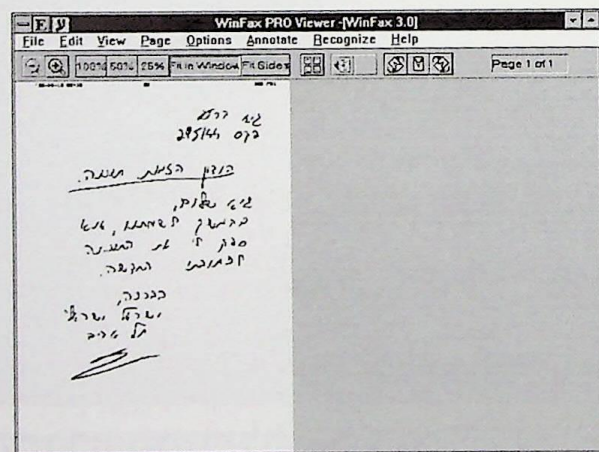 WinFax PRO Viewer -[WinFax 3.0]
File Edit View Page Options Annotate Recognize Help
100% 50% 25% Fit in Window Fit Sides Page 1 of 1
גיא
פקס 295144
הנדון הזמנת תוכנה.
גיא שלום,
בהמשך לשיחתנו, אנא
ספק לי את התוכנה
לכתובתי החדשה.
בברכה,
ישראל ישראלי
תל אביב